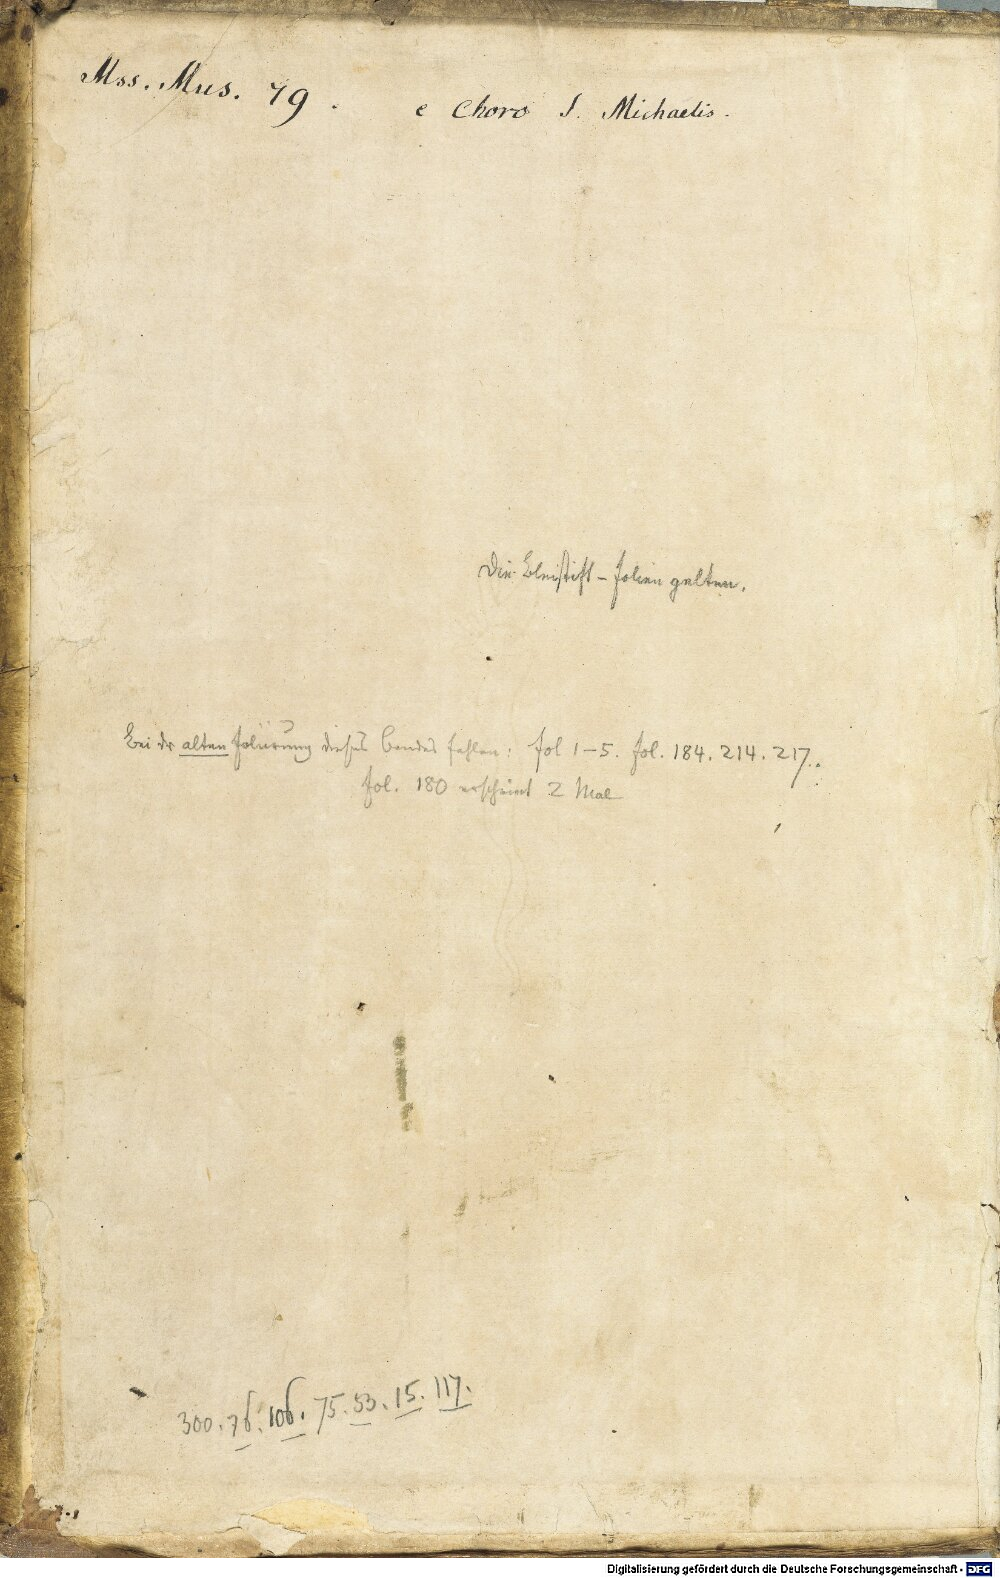 Mss. Mus. 79. e Choro S. Michaelis.
Die Bleistift-Folien gelten.
Bei der alten Foliierung dieses Bandes fehlen: fol 1-5. fol. 184. 214. 217.
fol. 180 erscheint 2 Mal
300. 76. 106. 75. 53. 15. 117.
Digitalisierung gefördert durch die Deutsche Forschungsgemeinschaft - DFG